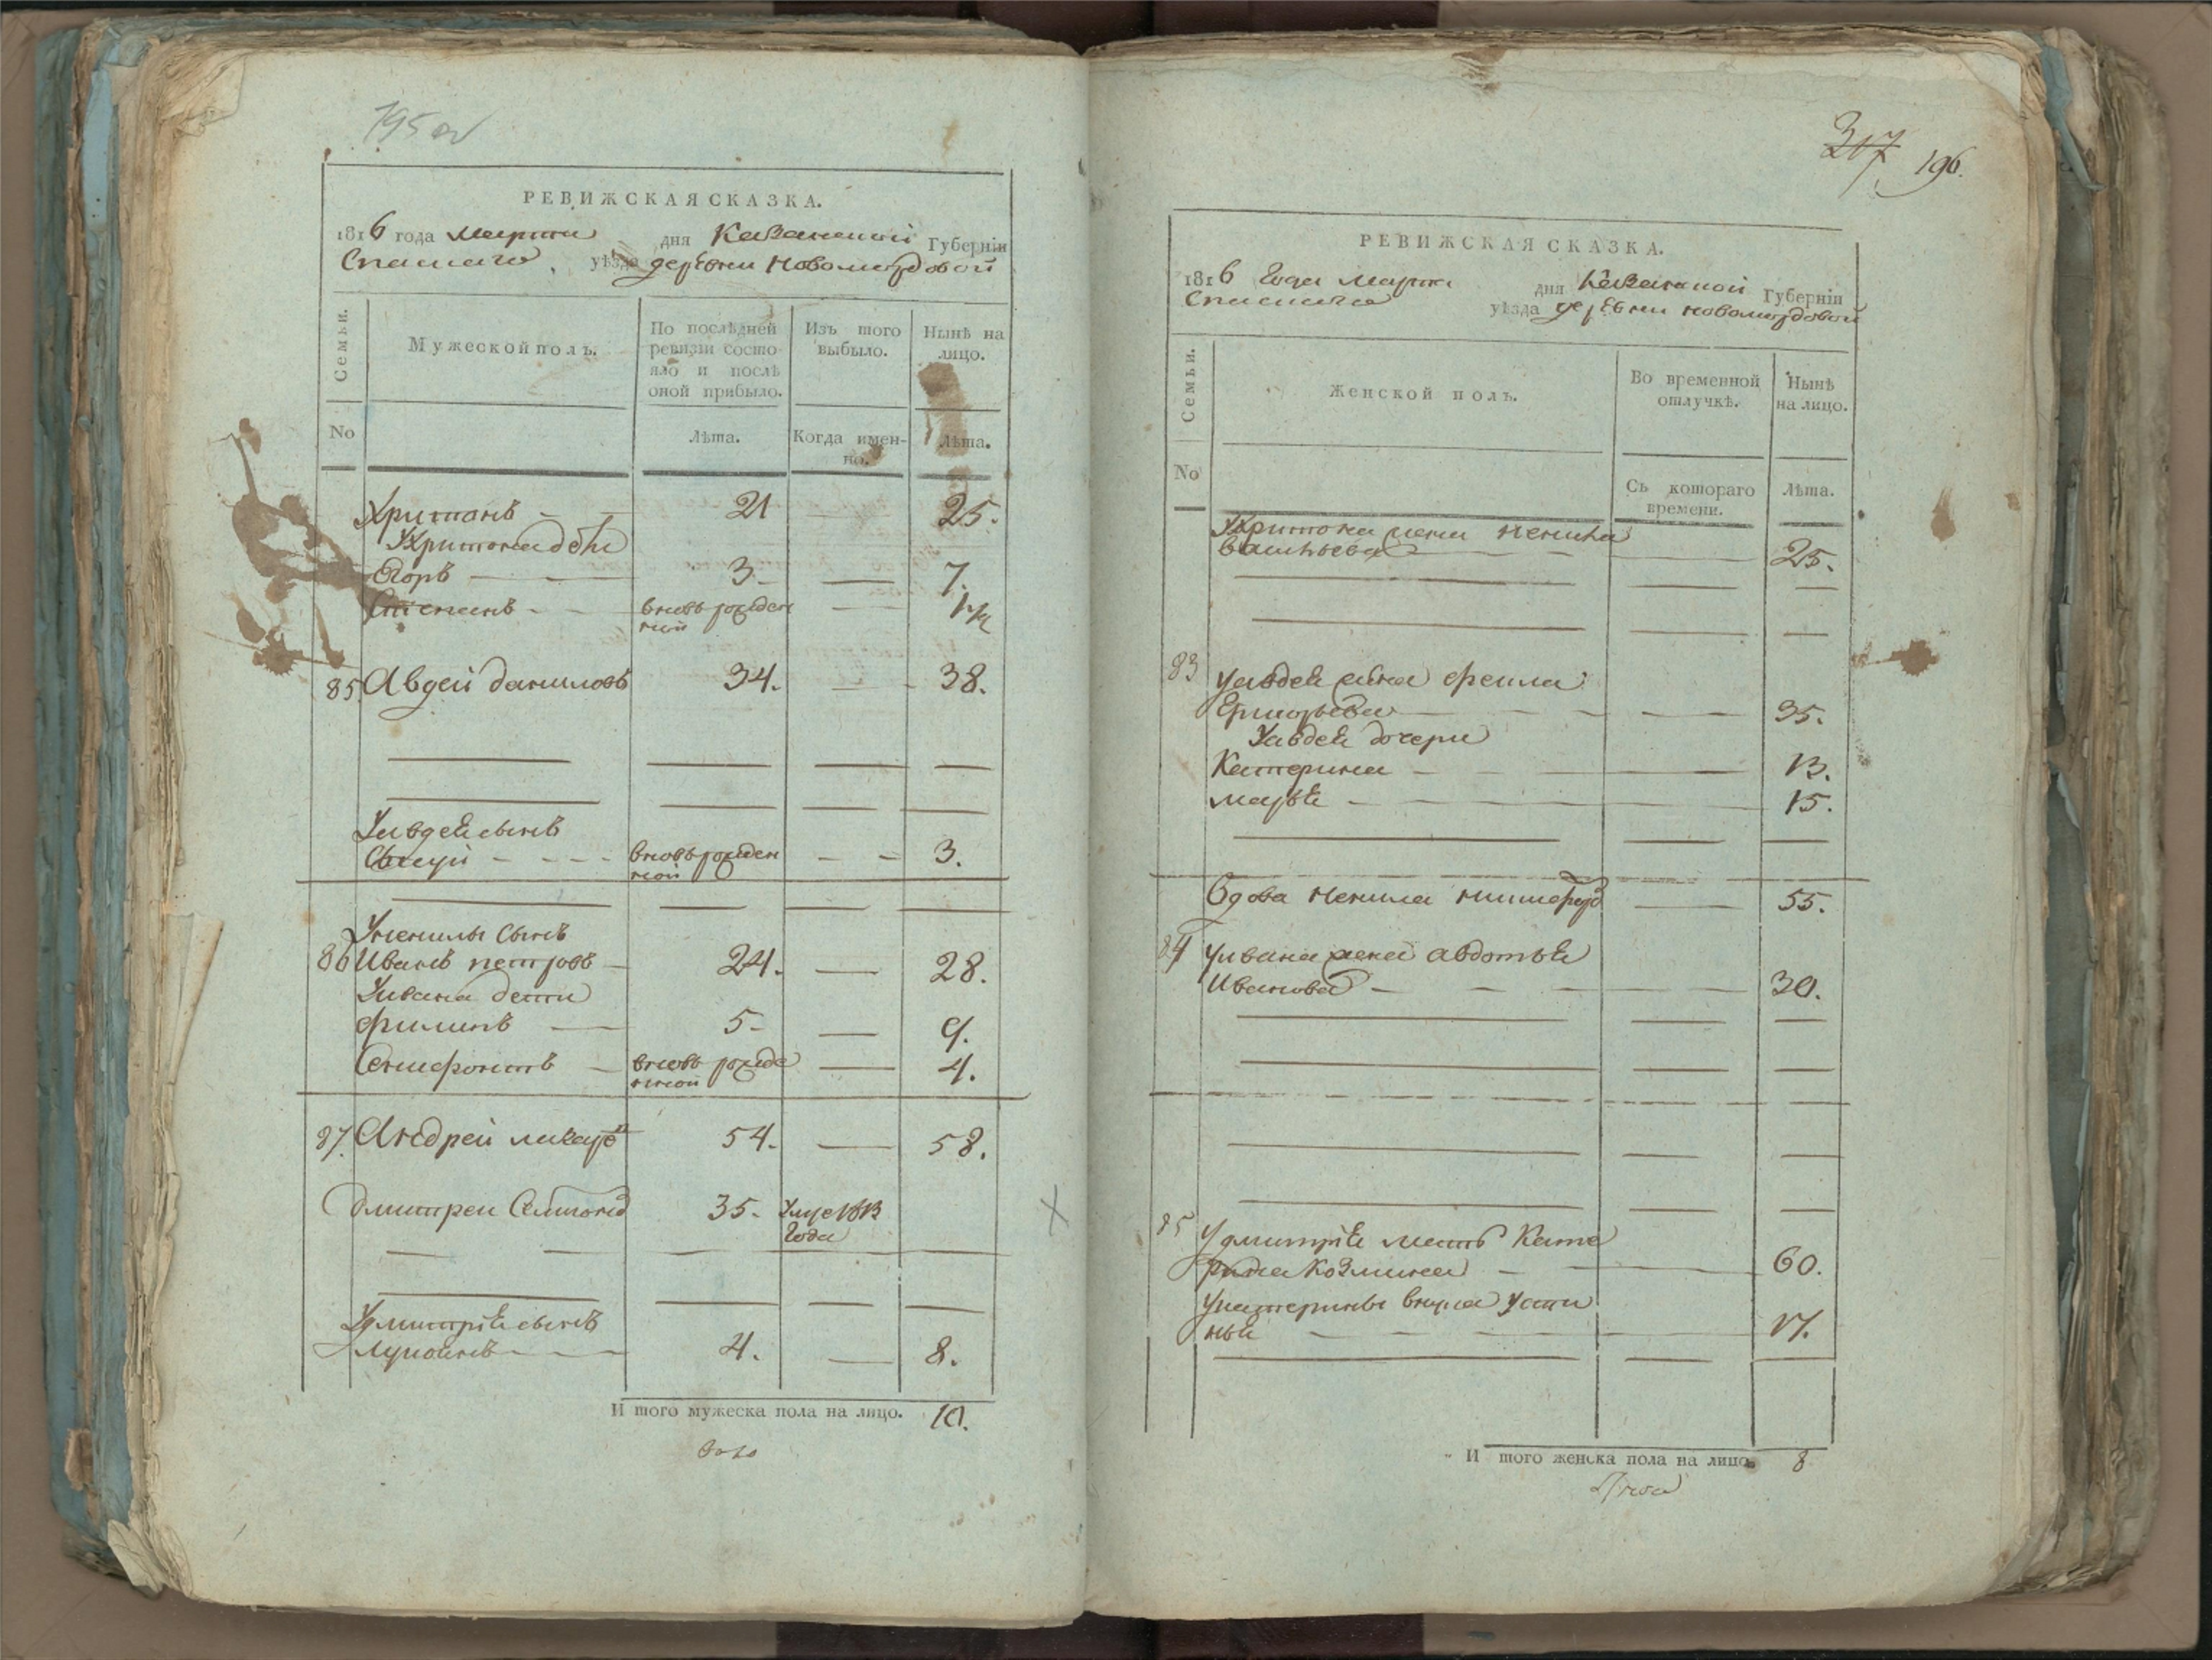 195 об
РЕВИЖСКАЯ СКАЗКА.
1816 года марта дня Казанской Губерніи
Спаскаго уѣзда деревни Новомордовой
Семьи.
Мужеской полъ.
По послѣдней ревизіи состояло и послѣ оной прибыло.
Изъ того выбыло.
Нынѣ на лицо.
No
Лѣта.
Когда именно.
Лѣта.
Харитонъ 21 25.
Ухаритона дѣти
Егоръ 3 7.
Степанъ вновь рожден ной
85 Авдей даниловъ 34. 38.
Уавдея сынъ
вновь рожден ной 3.
Уненилы сынъ
86 Иванъ петровъ 24. 28.
Уивана дети
филипъ 5 9.
Ксенофонтъ вновь рожде нной 4.
87. Андрей 54. 58.
дмитреи 35. Умре 1813 Года
Удмитрія сынъ
лукоянъ 4. 8.
И того мужеска пола на лицо. 10.
317 196.
РЕВИЖСКАЯ СКАЗКА.
1816 Года марта дня Казанской Губерніи
Спаскаго уѣзда деревни новомордовой
Семьи.
Женской полъ.
Во временной отлучкѣ.
Нынѣ на лицо.
No
Съ котораго времени.
Лѣта.
Ухаритона жена ненила
васильева 25.
83 Уавдея жена фекла
Григорьева 35.
Уавдея дочери
Катерина 13.
марья 15.
вдова ненила 55.
84 Уивана жена авдотья
Иванова 30.
85 Удмитрія мать Кате
рина Козмина 60.
Укатерины внука Усти
нья 17.
И того женска пола на лицо. 8